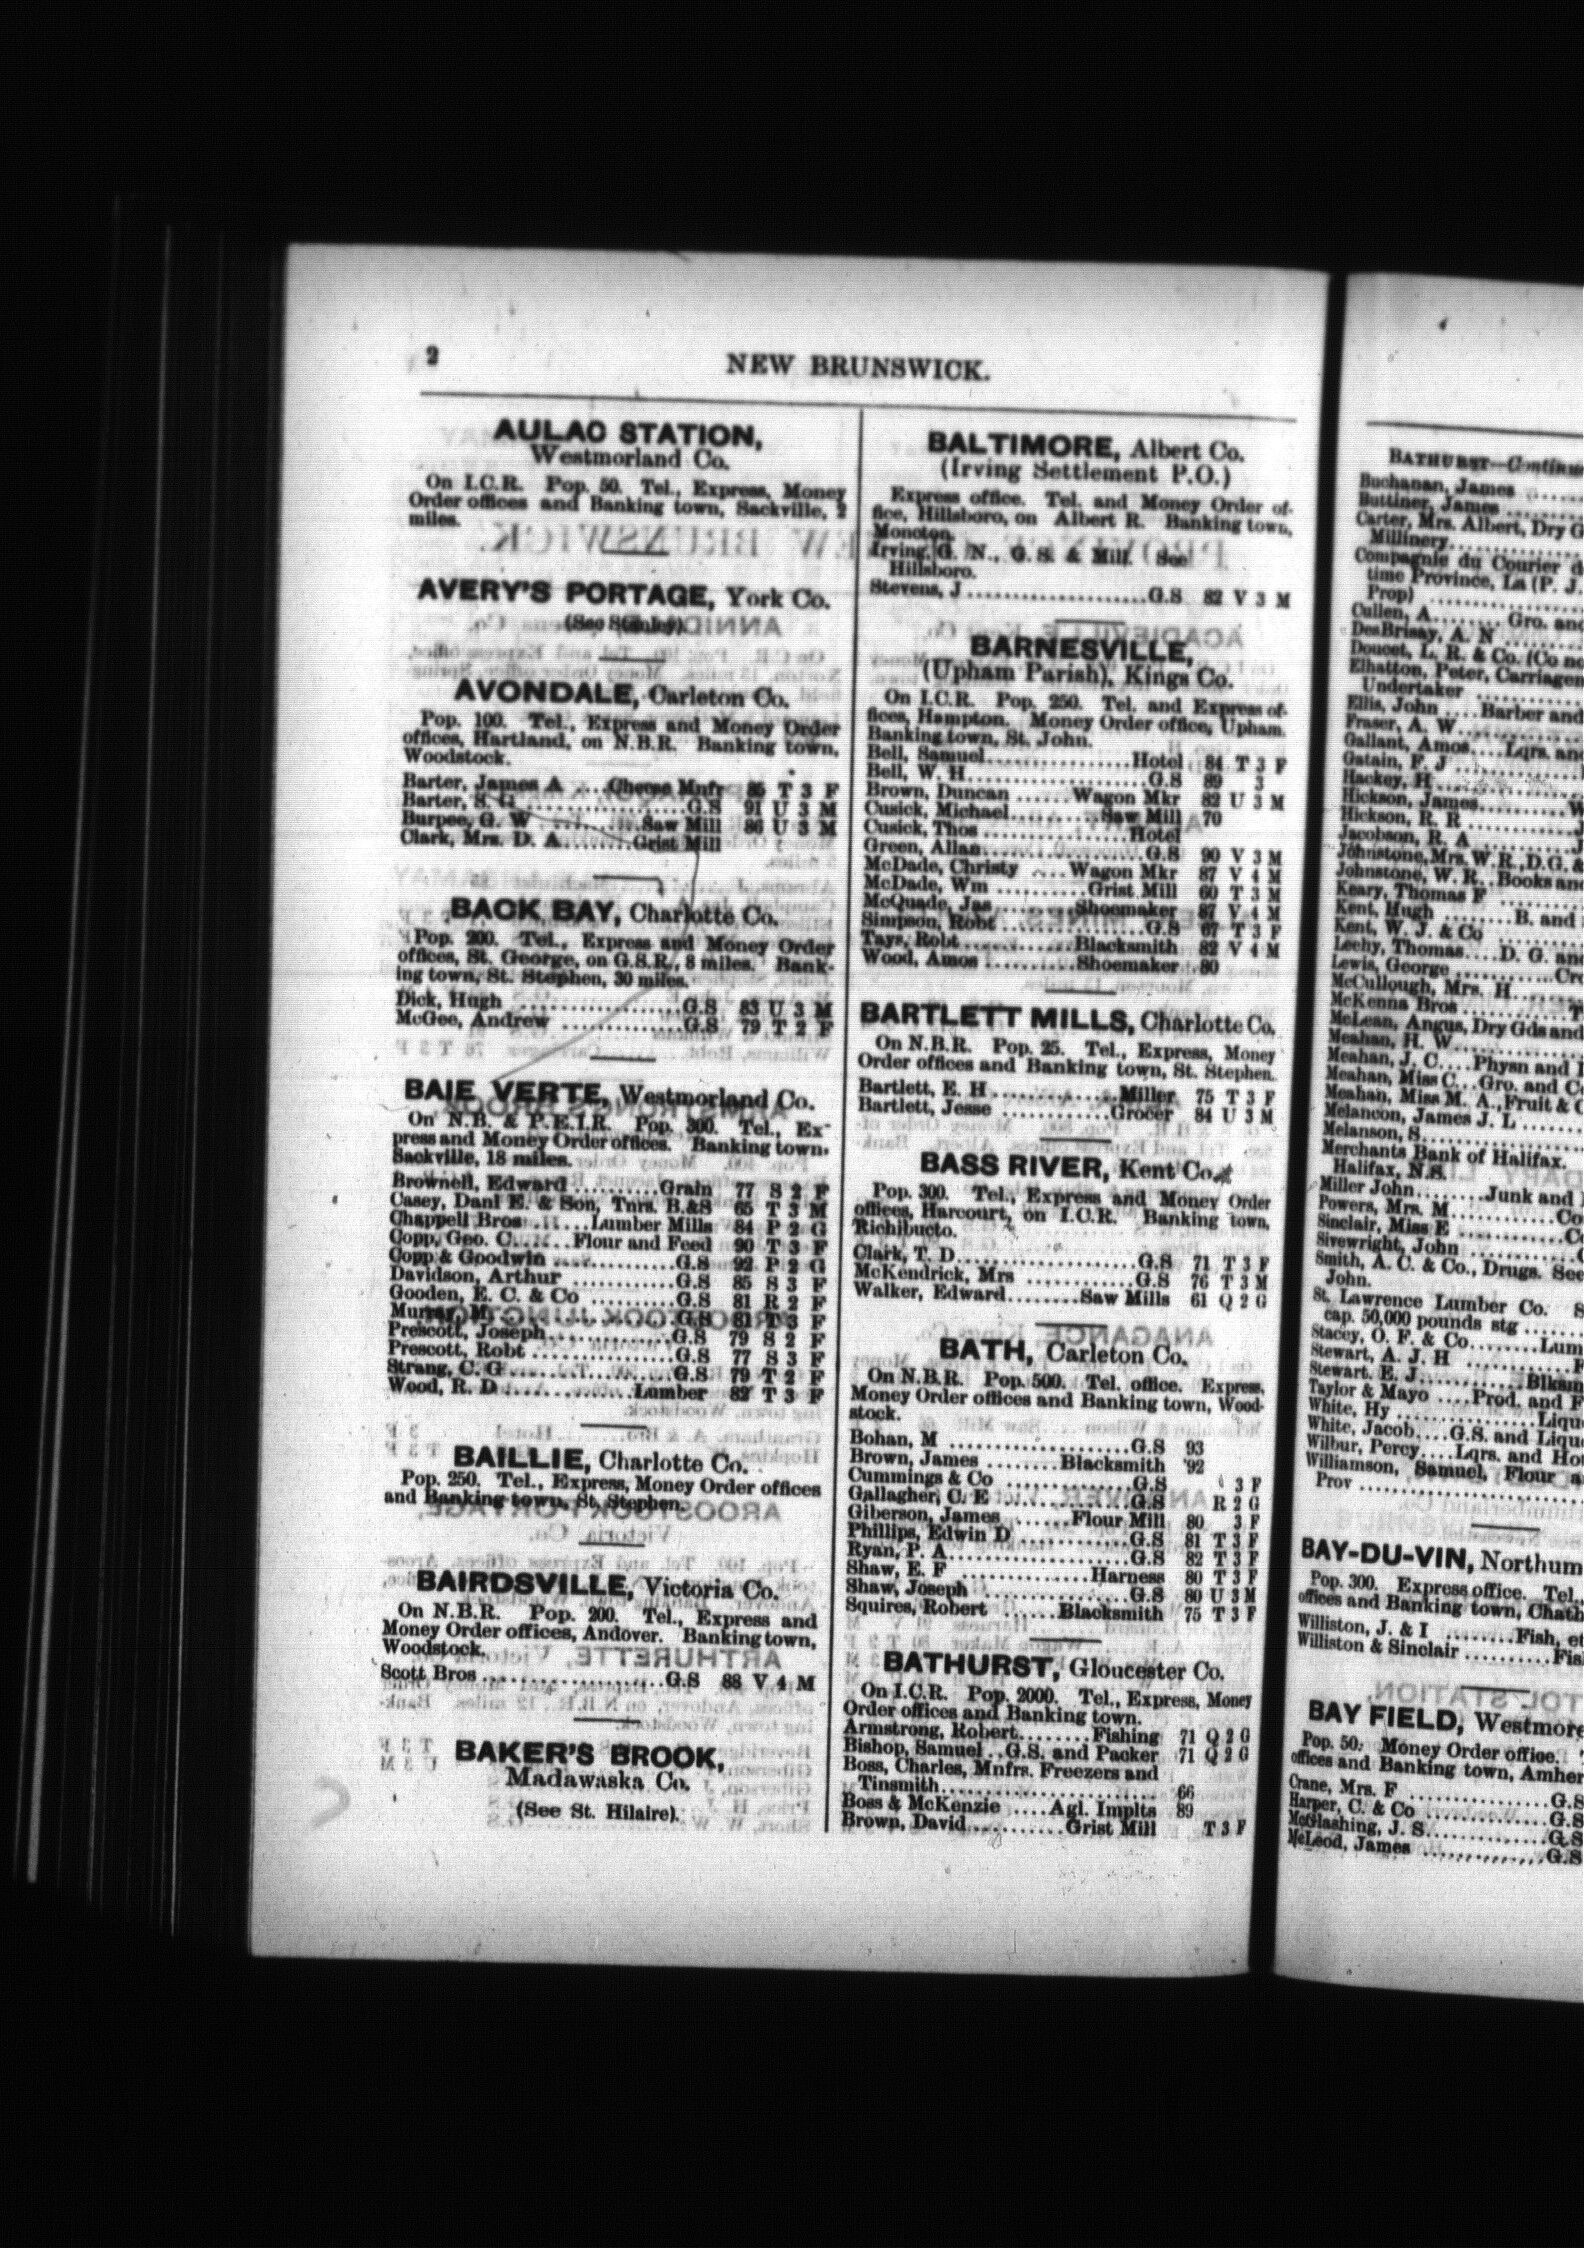 2
NEW BRUNSWICK.
AULAC STATION,
Westmorland Co.
On I.C.R. Pop. 50. Tel., Express, Money
Order offices and Banking town, Sackville, 2
miles.
AVERY'S PORTAGE, York Co.
(See Stanley).
AVONDALE, Carleton Co.
Pop. 100. Tel., Express and Money Order
offices, Hartland, on N.B.R. Banking town,
Woodstock.
Barter, James A ....Cheese Mnfr 85 T 3 F
Barter, S. G ................G.S 91 U 3 M
Burpee, G. W ..........Saw Mill 86 U 3 M
Clark, Mrs. D. A........Grist Mill
BACK BAY, Charlotte Co.
Pop. 200. Tel., Express and Money Order
offices, St. George, on G.S.R., 8 miles. Bank-
ing town, St. Stephen, 30 miles.
Dick, Hugh ..................G.S 83 U 3 M
McGee, Andrew .............G.S 79 T 2 F
BAIE VERTE, Westmorland Co.
On N.B. & P.E.I.R. Pop. 300. Tel., Ex-
press and Money Order offices. Banking town,
Sackville, 18 miles.
Brownell, Edward .........Grain 77 S 2 F
Casey, Danl E. & Son, Tnrs. B.&S 65 T 3 M
Chappell Bros .......Lumber Mills 84 P 2 G
Copp, Geo. C......Flour and Feed 90 T 3 F
Copp & Goodwin .............G.S 92 P 2 G
Davidson, Arthur ............G.S 85 S 3 F
Gooden, E. C. & Co .........G.S 81 R 2 F
Murray, M...................G.S 81 T 3 F
Prescott, Joseph.............G.S 79 S 2 F
Prescott, Robt ...............G.S 77 S 3 F
Strang, C. G .................G.S 79 T 2 F
Wood, R. D ..............Lumber 82 T 3 F
BAILLIE, Charlotte Co.
Pop. 250. Tel., Express, Money Order offices
and Banking town, St. Stephen.
BAIRDSVILLE, Victoria Co.
On N.B.R. Pop. 200. Tel., Express and
Money Order offices, Andover. Banking town,
Woodstock.
Scott Bros ...................G.S 88 V 4 M
BAKER'S BROOK,
Madawaska Co.
(See St. Hilaire).
BALTIMORE, Albert Co.
(Irving Settlement P.O.)
Express office. Tel. and Money Order of-
fice, Hillsboro, on Albert R. Banking town,
Moncton.
Irving, G. N., G.S. & Mill. See
Hillsboro.
Stevens, J ....................G.S 82 V 3 M
BARNESVILLE,
(Upham Parish), Kings Co.
On I.C.R. Pop. 250. Tel. and Express of-
fices, Hampton. Money Order office, Upham.
Banking town, St. John.
Bell, Samuel................Hotel 84 T 3 F
Bell, W. H....................G.S 89 3
Brown, Duncan ......Wagon Mkr 82 U 3 M
Cusick, Michael..........Saw Mill 70
Cusick, Thos ................Hotel
Green, Allan..................G.S 90 V 3 M
McDade, Christy ....Wagon Mkr 87 V 4 M
McDade, Wm ..........Grist Mill 60 T 3 M
McQuade, Jas .........Shoemaker 87 V 4 M
Simpson, Robt ................G.S 67 T 3 F
Tays, Robt.............Blacksmith 82 V 4 M
Wood, Amos ..........Shoemaker 80
BARTLETT MILLS, Charlotte Co.
On N.B.R. Pop. 25. Tel., Express, Money
Order offices and Banking town, St. Stephen.
Bartlett, E. H ..............Miller 75 T 3 F
Bartlett, Jesse ............Grocer 84 U 3 M
BASS RIVER, Kent Co.
Pop. 300. Tel., Express and Money Order
offices, Harcourt, on I.C.R. Banking town,
Richibucto.
Clark, T. D....................G.S 71 T 3 F
McKendrick, Mrs ............G.S 76 T 3 M
Walker, Edward........Saw Mills 61 Q 2 G
BATH, Carleton Co.
On N.B.R. Pop. 500. Tel. office. Express,
Money Order offices and Banking town, Wood-
stock.
Bohan, M ....................G.S 93
Brown, James ........Blacksmith '92
Cummings & Co ..............G.S 3 F
Gallagher, C. E ..............G.S R 2 G
Giberson, James ......Flour Mill 80 3 F
Phillips, Edwin D ............G.S 81 T 3 F
Ryan, P. A....................G.S 82 T 3 F
Shaw, E. F ..............Harness 80 T 3 F
Shaw, Joseph ................G.S 80 U 3 M
Squires, Robert ......Blacksmith 75 T 3 F
BATHURST, Gloucester Co.
On I.C.R. Pop. 2000. Tel., Express, Money
Order offices and Banking town.
Armstrong, Robert........Fishing 71 Q 2 G
Bishop, Samuel ..G.S. and Packer 71 Q 2 G
Boss, Charles, Mnfrs. Freezers and
Tinsmith........................ 66
Boss & McKenzie ....Agl. Implts 89
Brown, David ..........Grist Mill T 3 F
BATHURST—Continue
Buchanan, James
Buttiner, James
Carter, Mrs. Albert, Dry G
Millinery
Compagnie du Courier d
time Province, La (P. J.
Prop)
Cullen, A........ Gro. and
DesBrisay, A. N
Doucet, L. R. & Co. (Co no
Elhatton, Peter, Carriagem
Undertaker
Ellis, John ....Barber and
Fraser, A. W
Gallant, Amos....Lqrs. and
Gatain, F. J
Hackey, H
Hickson, James..........W
Hickson, R. R
Jacobson, R. A
Johnstone, Mrs. W. R., D.G. &
Johnstone, W. R..Books and
Keary, Thomas F
Kent, Hugh ........B. and
Kent, W. J. & Co
Leehy, Thomas....D. G. and
Lewis, George ..........Cro
McCullough, Mrs. H
McKenna Bros
McLean, Angus, Dry Gds and
Meahan, H. W
Meahan, J. C....Physn and
Meahan, Miss C...Gro. and Co
Meahan, Miss M. A.,Fruit & C
Melancon, James J. L
Melanson, S
Merchants Bank of Halifax.
Halifax, N.S.
Miller John........Junk and
Powers, Mrs. M............Co
Sinclair, Miss E ..........Co
Sivewright, John
Smith, A. C. & Co., Drugs. See
John.
St. Lawrence Lumber Co. S
cap. 50,000 pounds stg
Stacey, O. F. & Co........Lum
Stewart, A. J. H ..........F
Stewart, E. J............Blksm
Taylor & Mayo ....Prod. and F
White, Hy ..............Lique
White, Jacob....G.S. and Lique
Wilbur, Percy....Lqrs. and Hot
Williamson, Samuel, Flour a
Prov
BAY-DU-VIN, Northum
Pop. 300. Express office. Tel.,
offices and Banking town, Chath
Williston, J. & I ........Fish, et
Williston & Sinclair ........Fis
BAY FIELD, Westmore
Pop. 50. Money Order office.
offices and Banking town, Amher
Crane, Mrs. F ................G.S
Harper, C. & Co ..............G.S
McGlashing, J. S..............G.S
McLeod, James ..............G.S